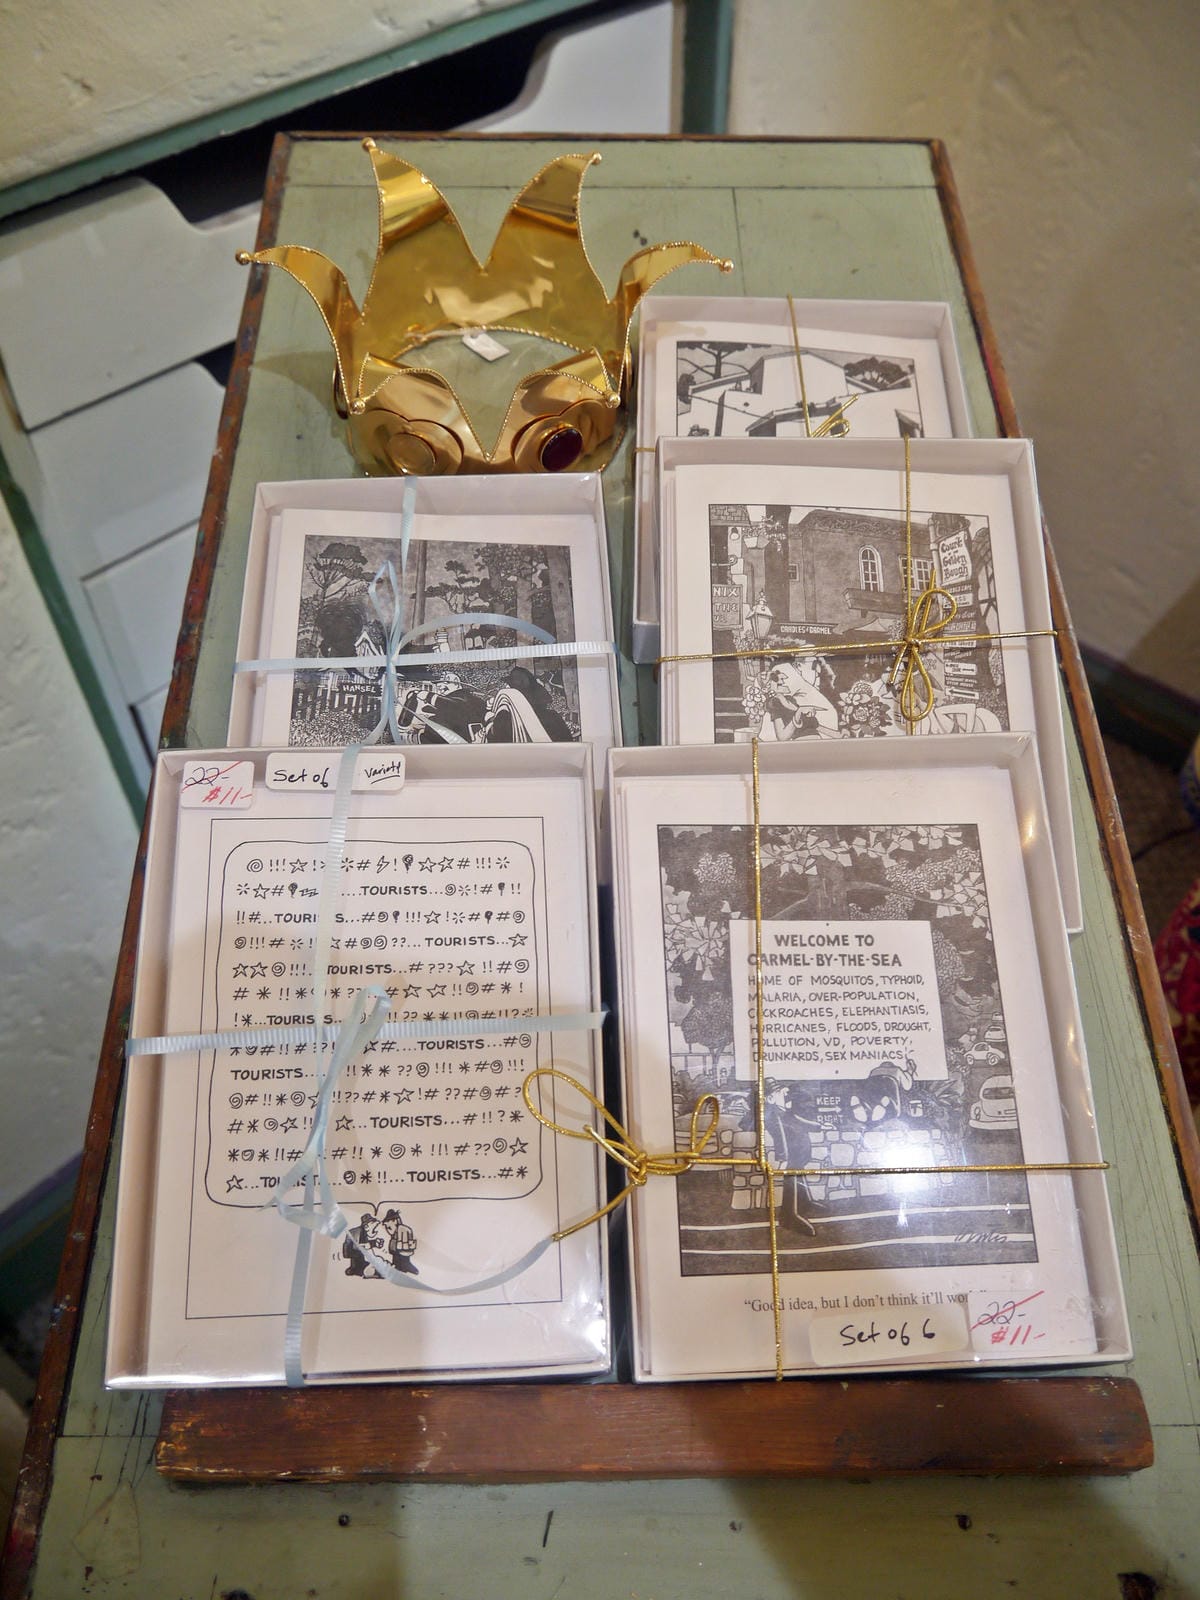 Court
of the
Golden
Bough
NIX
THE
CANDLES of CARMEL
HANSEL
22-
$11-
Set of
Variety
....TOURISTS...
...TOURISTS...
...TOURISTS...
...TOURISTS...
...TOURISTS
...TOURISTS...
TOURISTS....
...TOURISTS...
...TOURISTS...
...TOURISTS...
WELCOME TO
CARMEL-BY-THE-SEA
HOME OF MOSQUITOS, TYPHOID,
MALARIA, OVER-POPULATION,
COCKROACHES, ELEPHANTIASIS,
HURRICANES, FLOODS, DROUGHT,
POLLUTION, VD, POVERTY,
DRUNKARDS, SEX MANIACS
KEEP
RIGHT
"Good idea, but I don't think it'll work."
Set of 6
22-
$11-